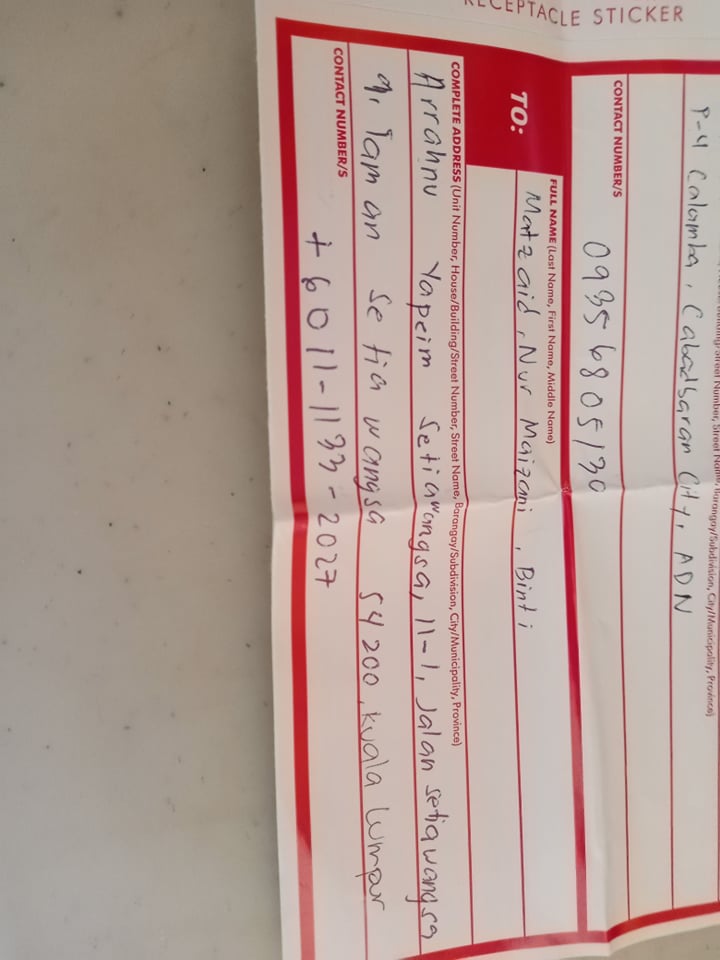 RECEPTACLE STICKER
Street Name, Barangay/Subdivision, City/Municipality, Province)
P-4 Calamba, Cabadbaran City, ADN
CONTACT NUMBER/S
09356805130
TO:
FULL NAME (Last Name, First Name, Middle Name)
Matzaid, Nur Maizani, Binti
COMPLETE ADDRESS (Unit Number, House/Building/Street Number, Street Name, Barangay/Subdivision, City/Municipality, Province)
Arrahnu Yapeim Setiawangsa, 11-1, Jalan setiawangsa
9, Taman Setiawangsa 54200, Kuala Lumpur
CONTACT NUMBER/S
+6011-1133-2027